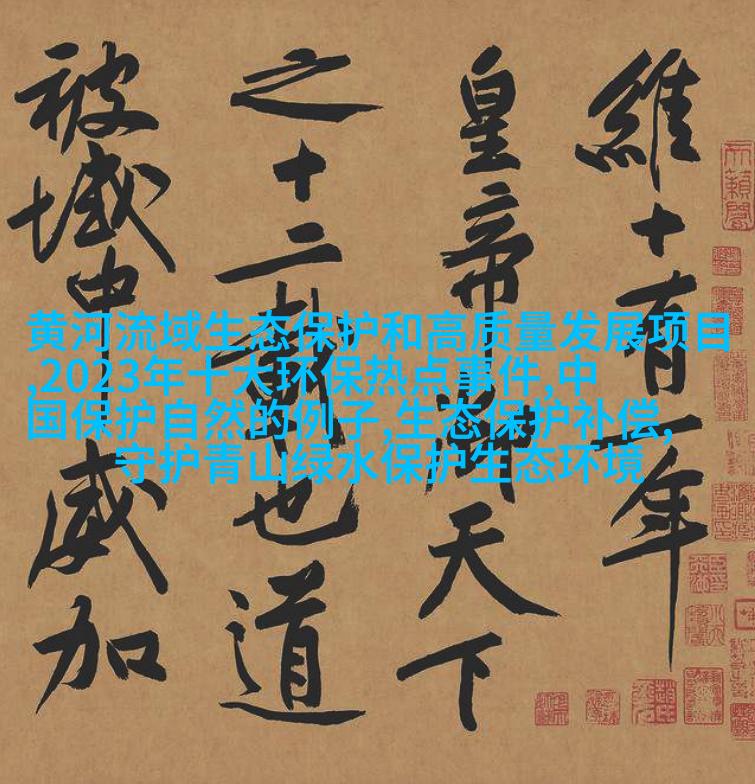 維十有一年
皇帝御天下
之十二載也道
被域中威加
黄河流域生态保护和高质量发展项目
,2023年十大环保热点事件,中
国保护自然的例子,生态保护补偿,
守护青山绿水保护生态环境
天籟閣